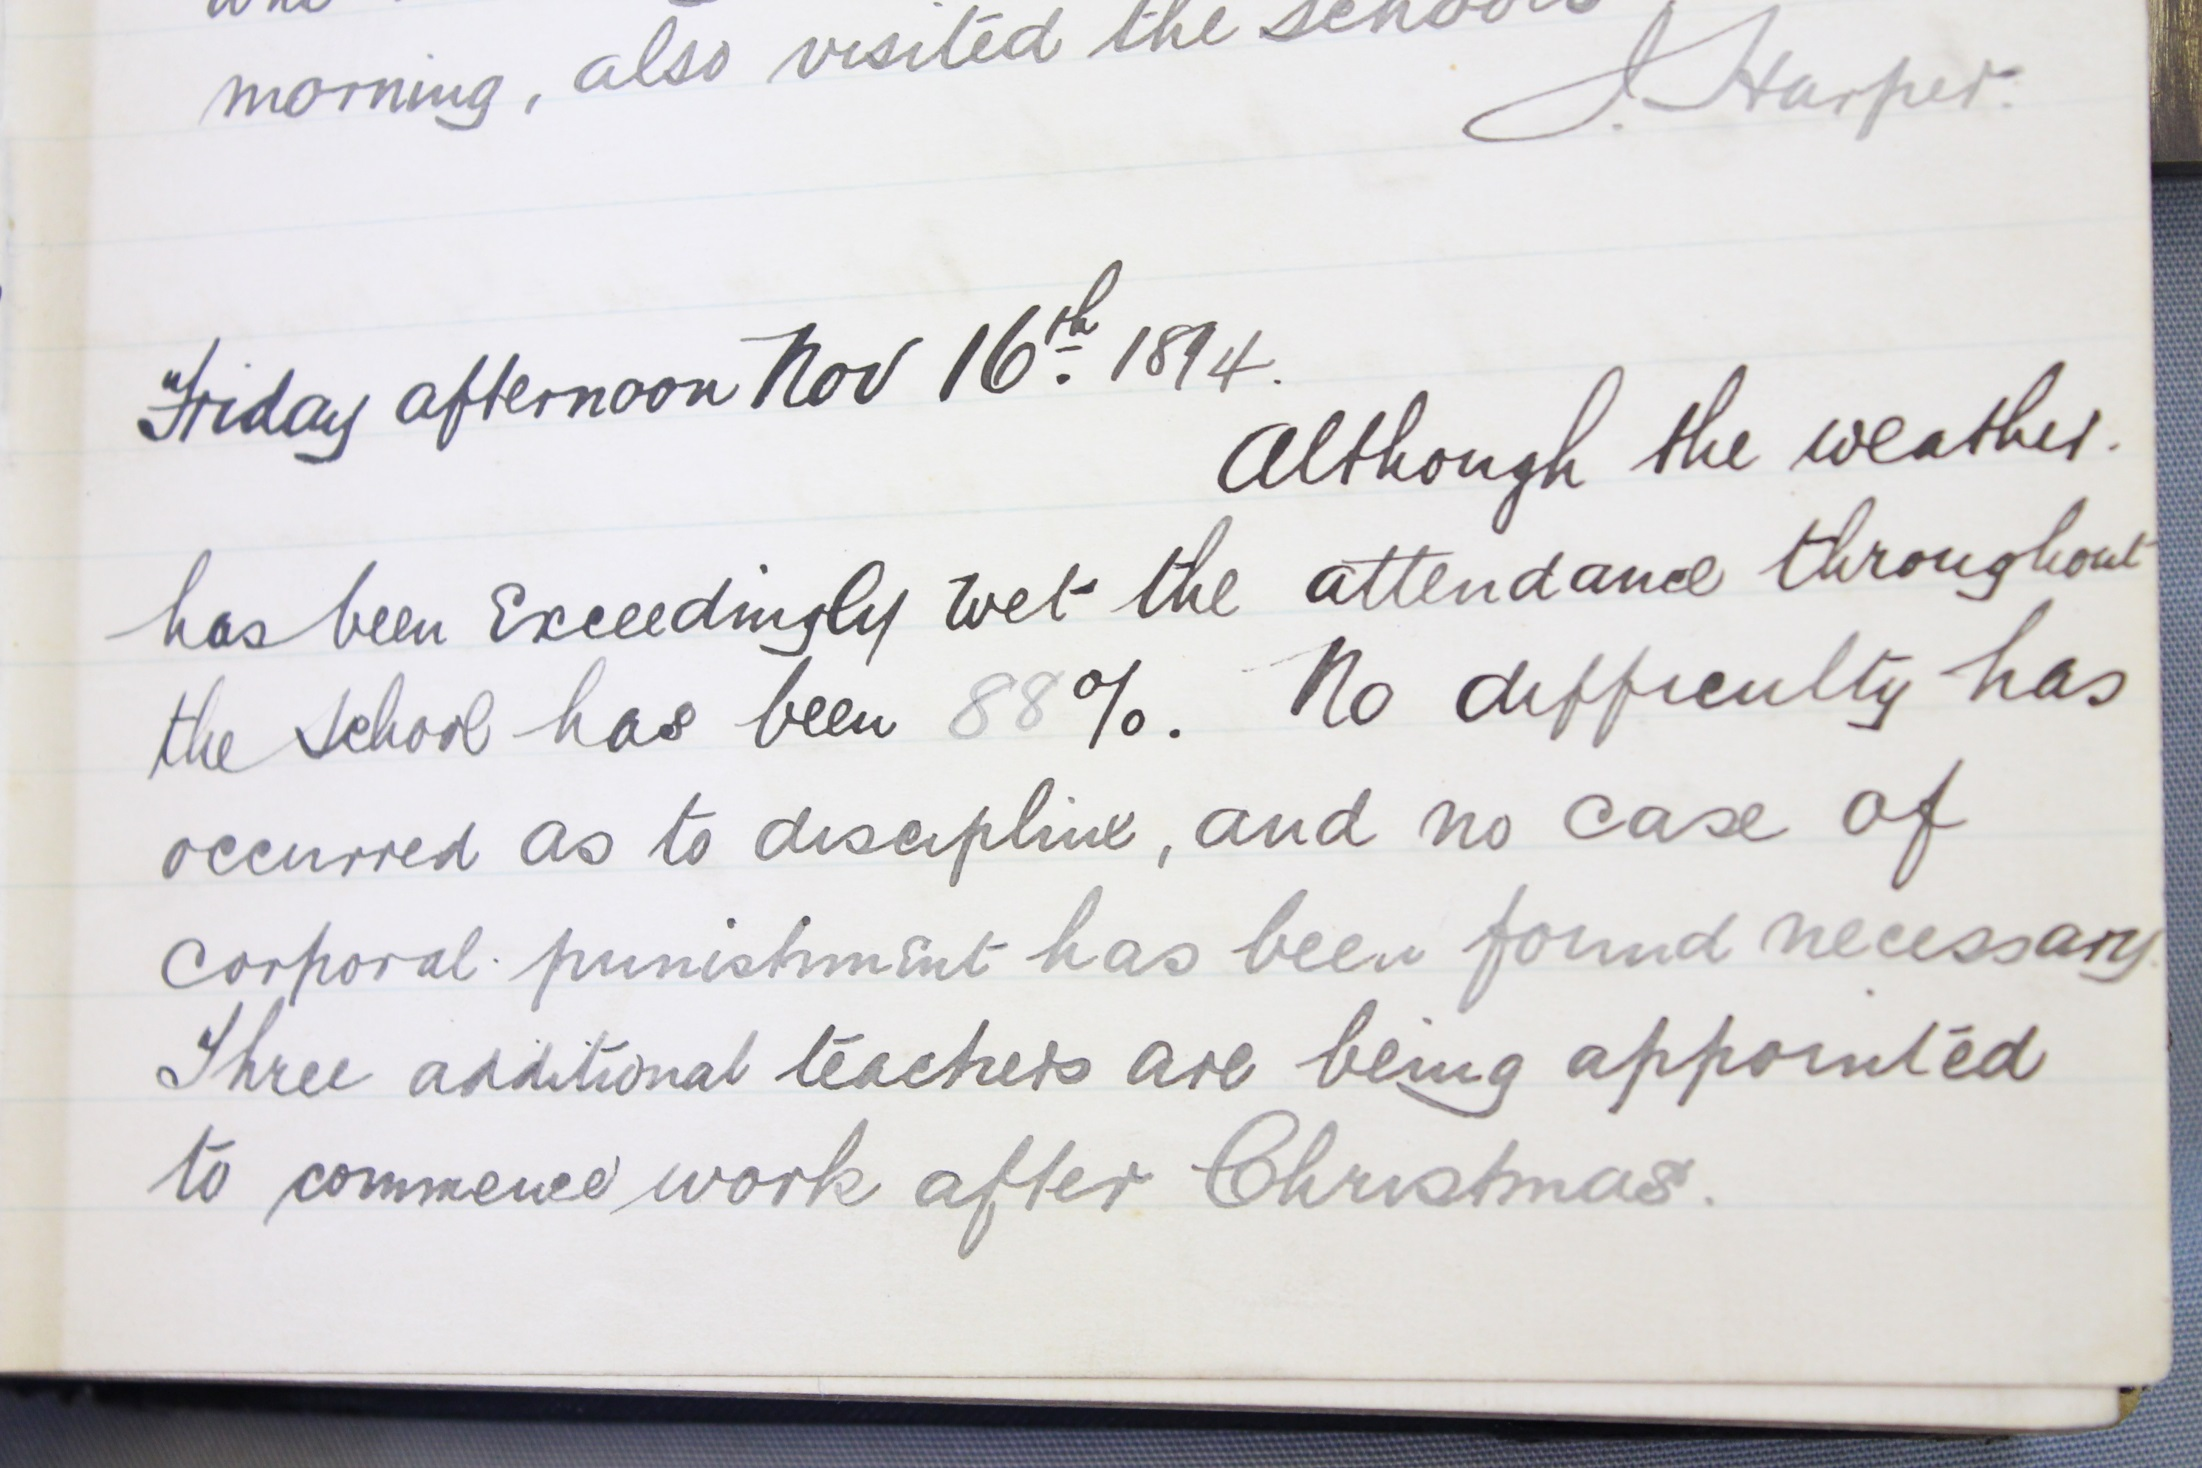 morning, also visited the schools
J. Harper.
Friday afternoon Nov 16th. 1894.
Although the weather.
has been Exceedingly wet the attendance throughout
the school has been 88%. No difficulty has
occurred as to discipline, and no case of
corporal punishment has been found necessary.
Three additional teachers are being appointed
to commence work after Christmas.